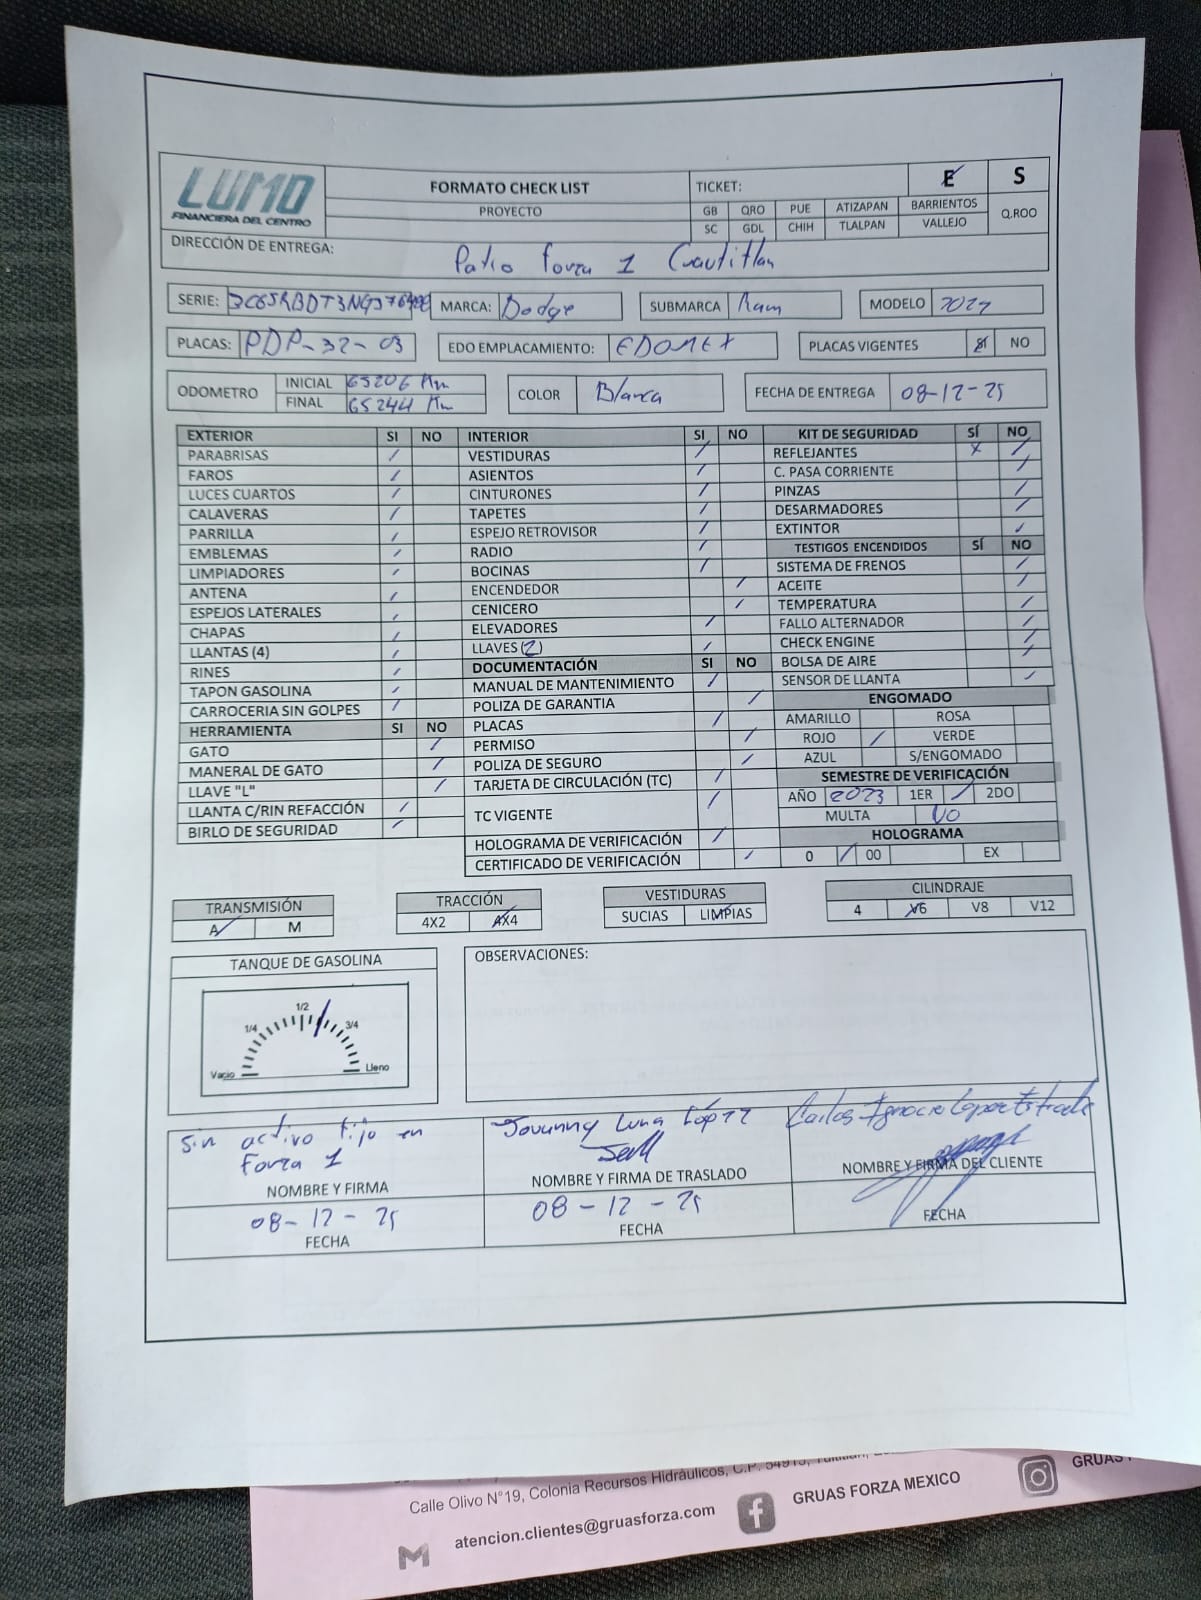 LUMO
FINANCIERA DEL CENTRO
FORMATO CHECK LIST
PROYECTO
TICKET:
E
S
GB QRO PUE ATIZAPAN BARRIENTOS
SC GDL CHIH TLALPAN VALLEJO
Q.ROO
DIRECCIÓN DE ENTREGA: Patio Forza 1 Cuautitlan
SERIE: MARCA: Dodge SUBMARCA Ram MODELO
PLACAS: PDP-32-03 EDO EMPLACAMIENTO: EDOMEX PLACAS VIGENTES NO
ODOMETRO INICIAL 65206 Km
FINAL 65244 Km
COLOR Blanca FECHA DE ENTREGA 08-12-25
EXTERIOR SI NO INTERIOR SI NO KIT DE SEGURIDAD SÍ NO
PARABRISAS / VESTIDURAS / REFLEJANTES x /
FAROS / ASIENTOS / C. PASA CORRIENTE /
LUCES CUARTOS / CINTURONES / PINZAS /
CALAVERAS / TAPETES / DESARMADORES /
PARRILLA / ESPEJO RETROVISOR / EXTINTOR /
EMBLEMAS / RADIO / TESTIGOS ENCENDIDOS SÍ NO
LIMPIADORES / BOCINAS / SISTEMA DE FRENOS /
ANTENA / ENCENDEDOR / ACEITE /
ESPEJOS LATERALES / CENICERO / TEMPERATURA /
CHAPAS / ELEVADORES / FALLO ALTERNADOR /
LLANTAS (4) / LLAVES (2) / CHECK ENGINE /
RINES / DOCUMENTACIÓN SI NO BOLSA DE AIRE /
TAPON GASOLINA / MANUAL DE MANTENIMIENTO / SENSOR DE LLANTA /
CARROCERIA SIN GOLPES / POLIZA DE GARANTIA / ENGOMADO
HERRAMIENTA SI NO PLACAS / AMARILLO ROSA
GATO / PERMISO / ROJO / VERDE
MANERAL DE GATO / POLIZA DE SEGURO / AZUL S/ENGOMADO
LLAVE "L" / TARJETA DE CIRCULACIÓN (TC) / SEMESTRE DE VERIFICACIÓN
LLANTA C/RIN REFACCIÓN / TC VIGENTE / AÑO 2023 1ER / 2DO
BIRLO DE SEGURIDAD / MULTA NO
HOLOGRAMA DE VERIFICACIÓN / HOLOGRAMA
CERTIFICADO DE VERIFICACIÓN / 0 / 00 EX
TRANSMISIÓN TRACCIÓN VESTIDURAS CILINDRAJE
A M 4X2 4X4 SUCIAS LIMPIAS 4 V6 V8 V12
TANQUE DE GASOLINA
Vacio 1/4 1/2 3/4 Lleno
OBSERVACIONES:
Sin activo fijo en
Forza 1
NOMBRE Y FIRMA
08-12-25
FECHA
Jovanny Luna López
NOMBRE Y FIRMA DE TRASLADO
08-12-25
FECHA
Carlos Ignacio Lopez Estrada
NOMBRE Y FIRMA DEL CLIENTE
FECHA
Calle Olivo N°19, Colonia Recursos Hidráulicos, C.P. 54913,
atencion.clientes@gruasforza.com
GRUAS FORZA MEXICO
GRUAS